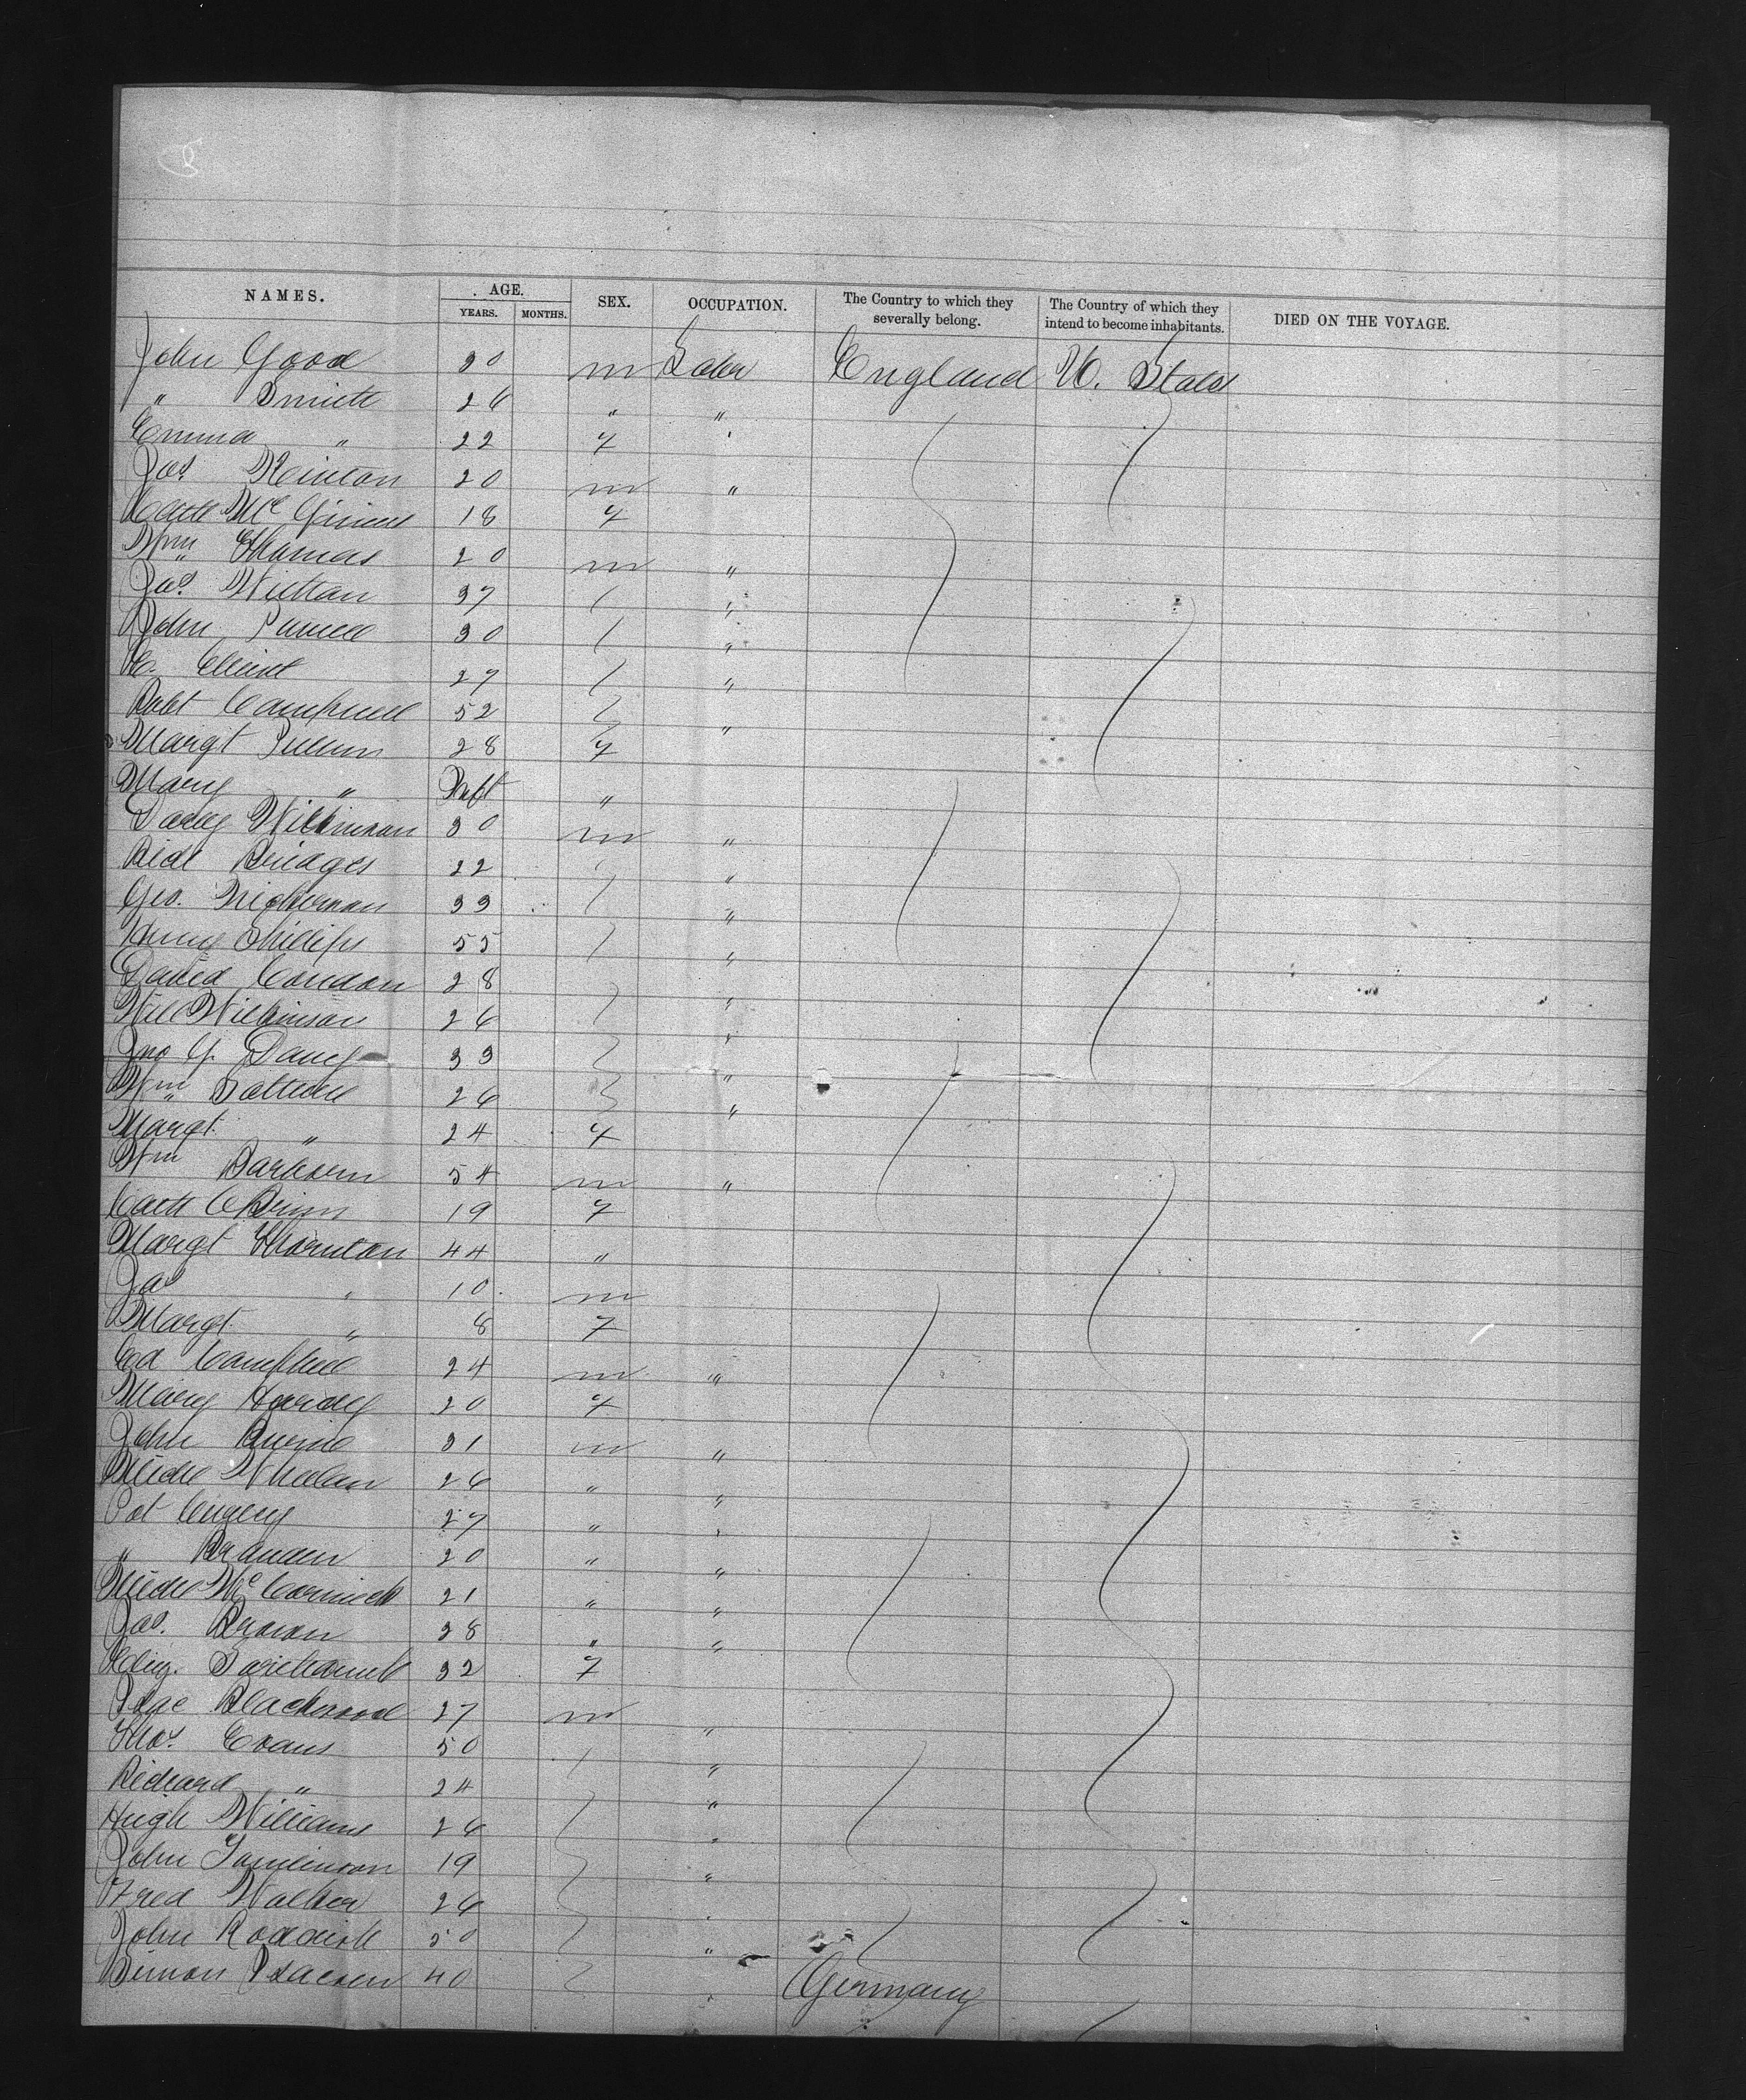 NAMES. AGE. SEX. OCCUPATION. The Country to which they severally belong. The Country of which they intend to become inhabitants. DIED ON THE VOYAGE.
YEARS. MONTHS.
John Good 30 m Labr England U. States
" Smith 26 " "
Emma " 22 f "
Jas Kenton 20 m "
Cath Mc 18 f
Wm Thomas 20 m "
Jas 37 "
John 30 "
27 "
Robt Campbell 52 "
Margt 28 f
Mary " Inft "
Wilkinson 30 m "
Richd Bridges 22 "
Geo. 33 "
Henry Phillips 55 "
David Condon 28 "
Will Wilkinson 26 "
Jno G. Davey 33 "
Wm 26 "
Margt " 24 f
Wm 54 m "
Cath O'Brien 19 f
Margt Thornton 44 "
Jas " 10 m
Margt " 8 f
Ed Campbell 24 m "
Mary 20 f
John 31 m "
Michl Whelan 26 " "
Pat 27 " "
" 20 " "
Michl McCormick 21 " "
Jas. Brown 28 " "
Eliz. 32 f
Isac Blackwood 27 m "
Thos Evans 50 "
Richard " 24 "
Hugh Williams 26 "
John Tomlinson 19 "
Fred Walker 26 "
John Roddick 50 "
Simon Isacsen 40 " Germany